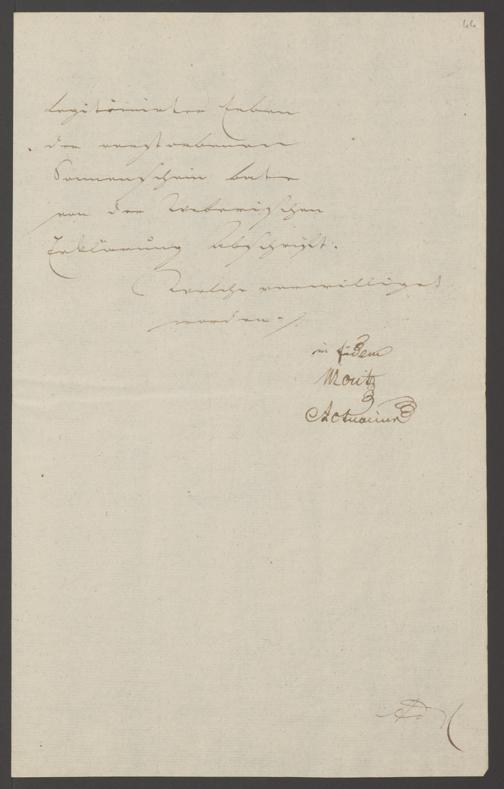 44
legitimirter Erben
der verstorbenen
Sonnenschein bate
von der Weberischen
Erklärung Abschrift.
Welche verwilliget
worden.
in fidem
Moritz
Actuarius